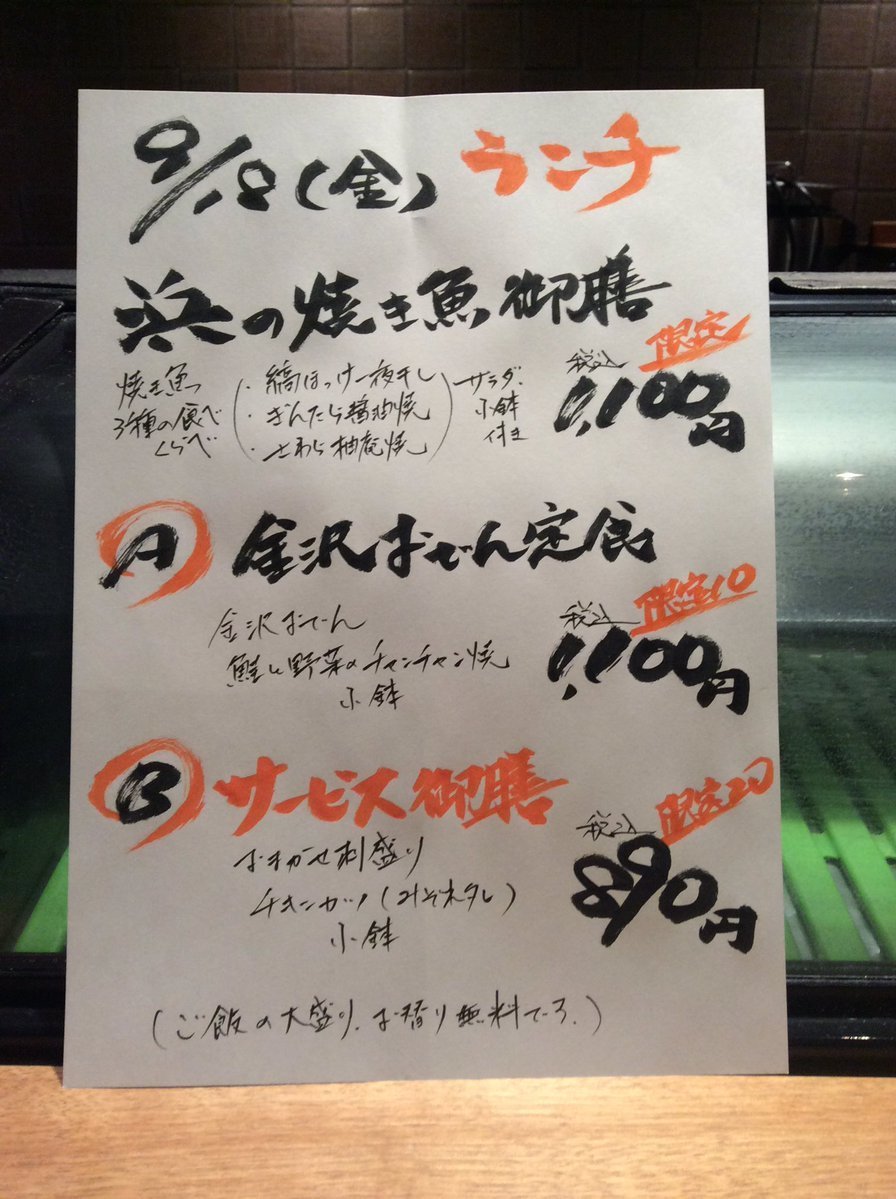 9/18(金) ランチ
浜の焼き魚御膳
焼き魚
3種の食べ
くらべ
・縞ほっけ一夜干し
・ぎんだら醤油焼
・さわら柚庵焼
サラダ、
小鉢
付き
限定
税込
1,100円
A 金沢おでん定食
金沢おでん
鮭と野菜のチャンチャン焼
小鉢
限定10
税込
1,100円
B サービス御膳
おまかせ刺盛り
チキンカツ(みそ木タレ)
小鉢
限定20
税込
890円
(ご飯の大盛り、お替り無料です。)